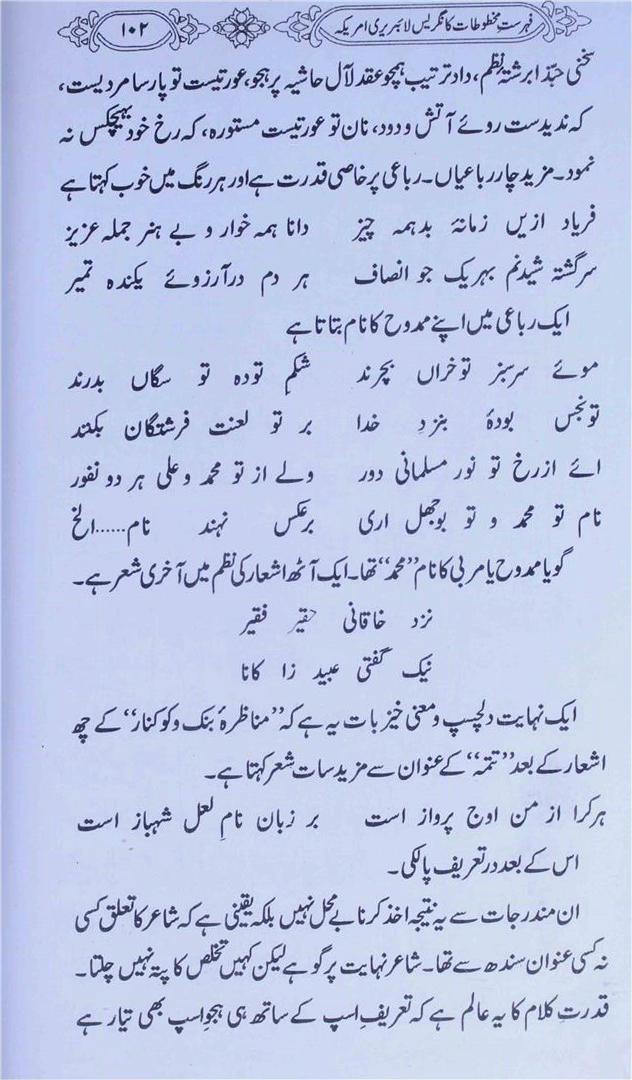 فہرست مخطوطات کانگریس لائبریری امریکہ ۱۰۲
سخنی حبّذا برشتۂ نظم، داد ترتیب ہمچو عقد لآل حاشیہ پر ہجو، عورتیست تو پارسا مردیست،
کہ ندیدست روئے آتش و دود، نان تو عورتیست مستورہ، کہ رخ خود بہیچکس نہ
نمود۔ مزید چار رباعیاں۔ رباعی پر خاصی قدرت ہے اور ہر رنگ میں خوب کہتا ہے
فریاد ازیں زمانۂ بدہمہ چیز دانا ہمہ خوار و بے ہنر جملہ عزیز
سرگشتہ شیدنم بہریک جو انصاف ہر دم درآرزوئے یکندہ تمیر
ایک رباعی میں اپنے ممدوح کا نام بتاتا ہے
موئے سرسبز توخراں بچرند شکمِ تودہ تو سگاں بدرند
تونجس بودۂ بنزدِ خدا بر تو لعنت فرشتگان بکنند
ائے ازرخ تو نور مسلمانی دور ولے از تو محمد وعلی ہر دو نفور
نام تو محمد و تو بوجھل اری برعکس نہند نام......الخ
گویا ممدوح یا مربی کا نام ”محمد“ تھا۔ ایک آٹھ اشعار کی نظم میں آخری شعر ہے۔
نزد خاقانی حقیر فقیر
نیک گفتی عبید زا کانا
ایک نہایت دلچسپ و معنی خیز بات یہ ہے کہ ”مناظرۂ بنک و کوکنار“ کے چھ
اشعار کے بعد ”تتمہ“ کے عنوان سے مزید سات شعر کہتا ہے۔
ہرکرا از من اوج پرواز است بر زبان نامِ لعل شہباز است
اس کے بعد در تعریف پالکی۔
ان مندرجات سے یہ نتیجہ اخذ کرنا بے محل نہیں بلکہ یقینی ہے کہ شاعر کا تعلق کسی
نہ کسی عنوان سندھ سے تھا۔ شاعر نہایت پرگو ہے لیکن کہیں تخلص کا پتہ نہیں چلتا۔
قدرتِ کلام کا یہ عالم ہے کہ تعریف اسپ کے ساتھ ہی ہجوِ اسپ بھی تیار ہے